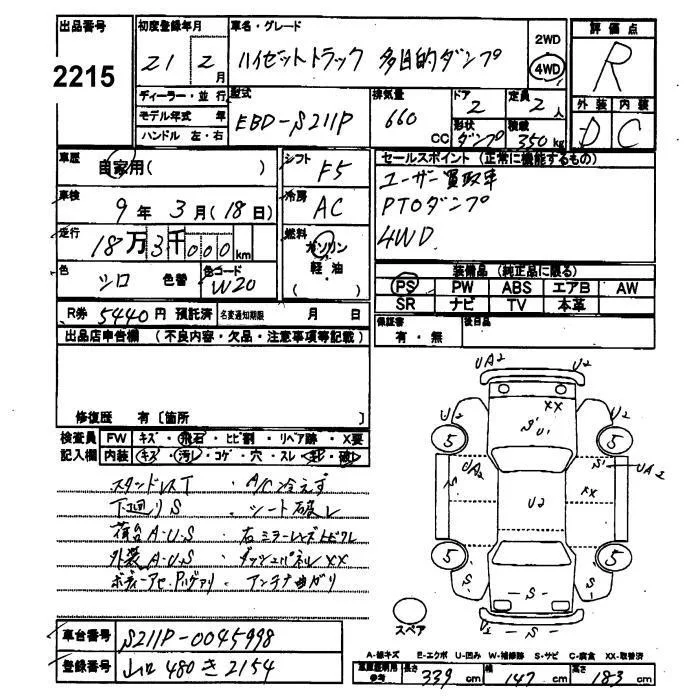 出品番号
2215
初度登録年月
21 2月
車名・グレード
ハイゼットトラック 多目的ダンプ
2WD
4WD
評価点
R
外装 内装
D C
ディーラー・並行
モデル年式 年
ハンドル 左・右
型式
EBD-S211P
排気量
660 CC
ドア
2
形状
ダンプ
定員
2人
積載
350kg
車歴
自家用( )
車検
9年 3月(18日)
走行
18万3千000km
色
シロ 色替
色コード
W20
シフト
F5
冷房
AC
燃料
ガソリン
軽油
( )
セールスポイント (正常に機能するもの)
ユーザー買取車
PTOダンプ
4WD
装備品 (純正品に限る)
PS PW ABS エアB AW
SR ナビ TV 本革
R券 5440円 預託済 名変通知期限 月 日
保証書
有・無
後日品
出品店申告欄 (不良内容・欠品・注意事項等記載)
修復歴 有〔箇所 〕
検査員 FW キズ・飛石・ヒビ割・リペア跡・X要
記入欄 内装 キズ・汚レ・コゲ・穴・スレ・
A/C冷えず
下回りS ・シート破レ
荷台A・U・S
外装A・U・S ・ダッシュパネルXX
・アンテナ曲ガリ
UA2 U2
XX
S' U1
U2 U2
5 5
UA2 S' UA2
S U2 XX
5 5
S S S
U2 S S
スペア
車台番号 S211P-0045998
登録番号 山口 480 き 2154
A-線キズ E-エクボ U-凹み W-補修跡 S-サビ C-腐食 XX-取替済
車庫証明用参考 長さ 339 cm 幅 147 cm 高さ 183 cm